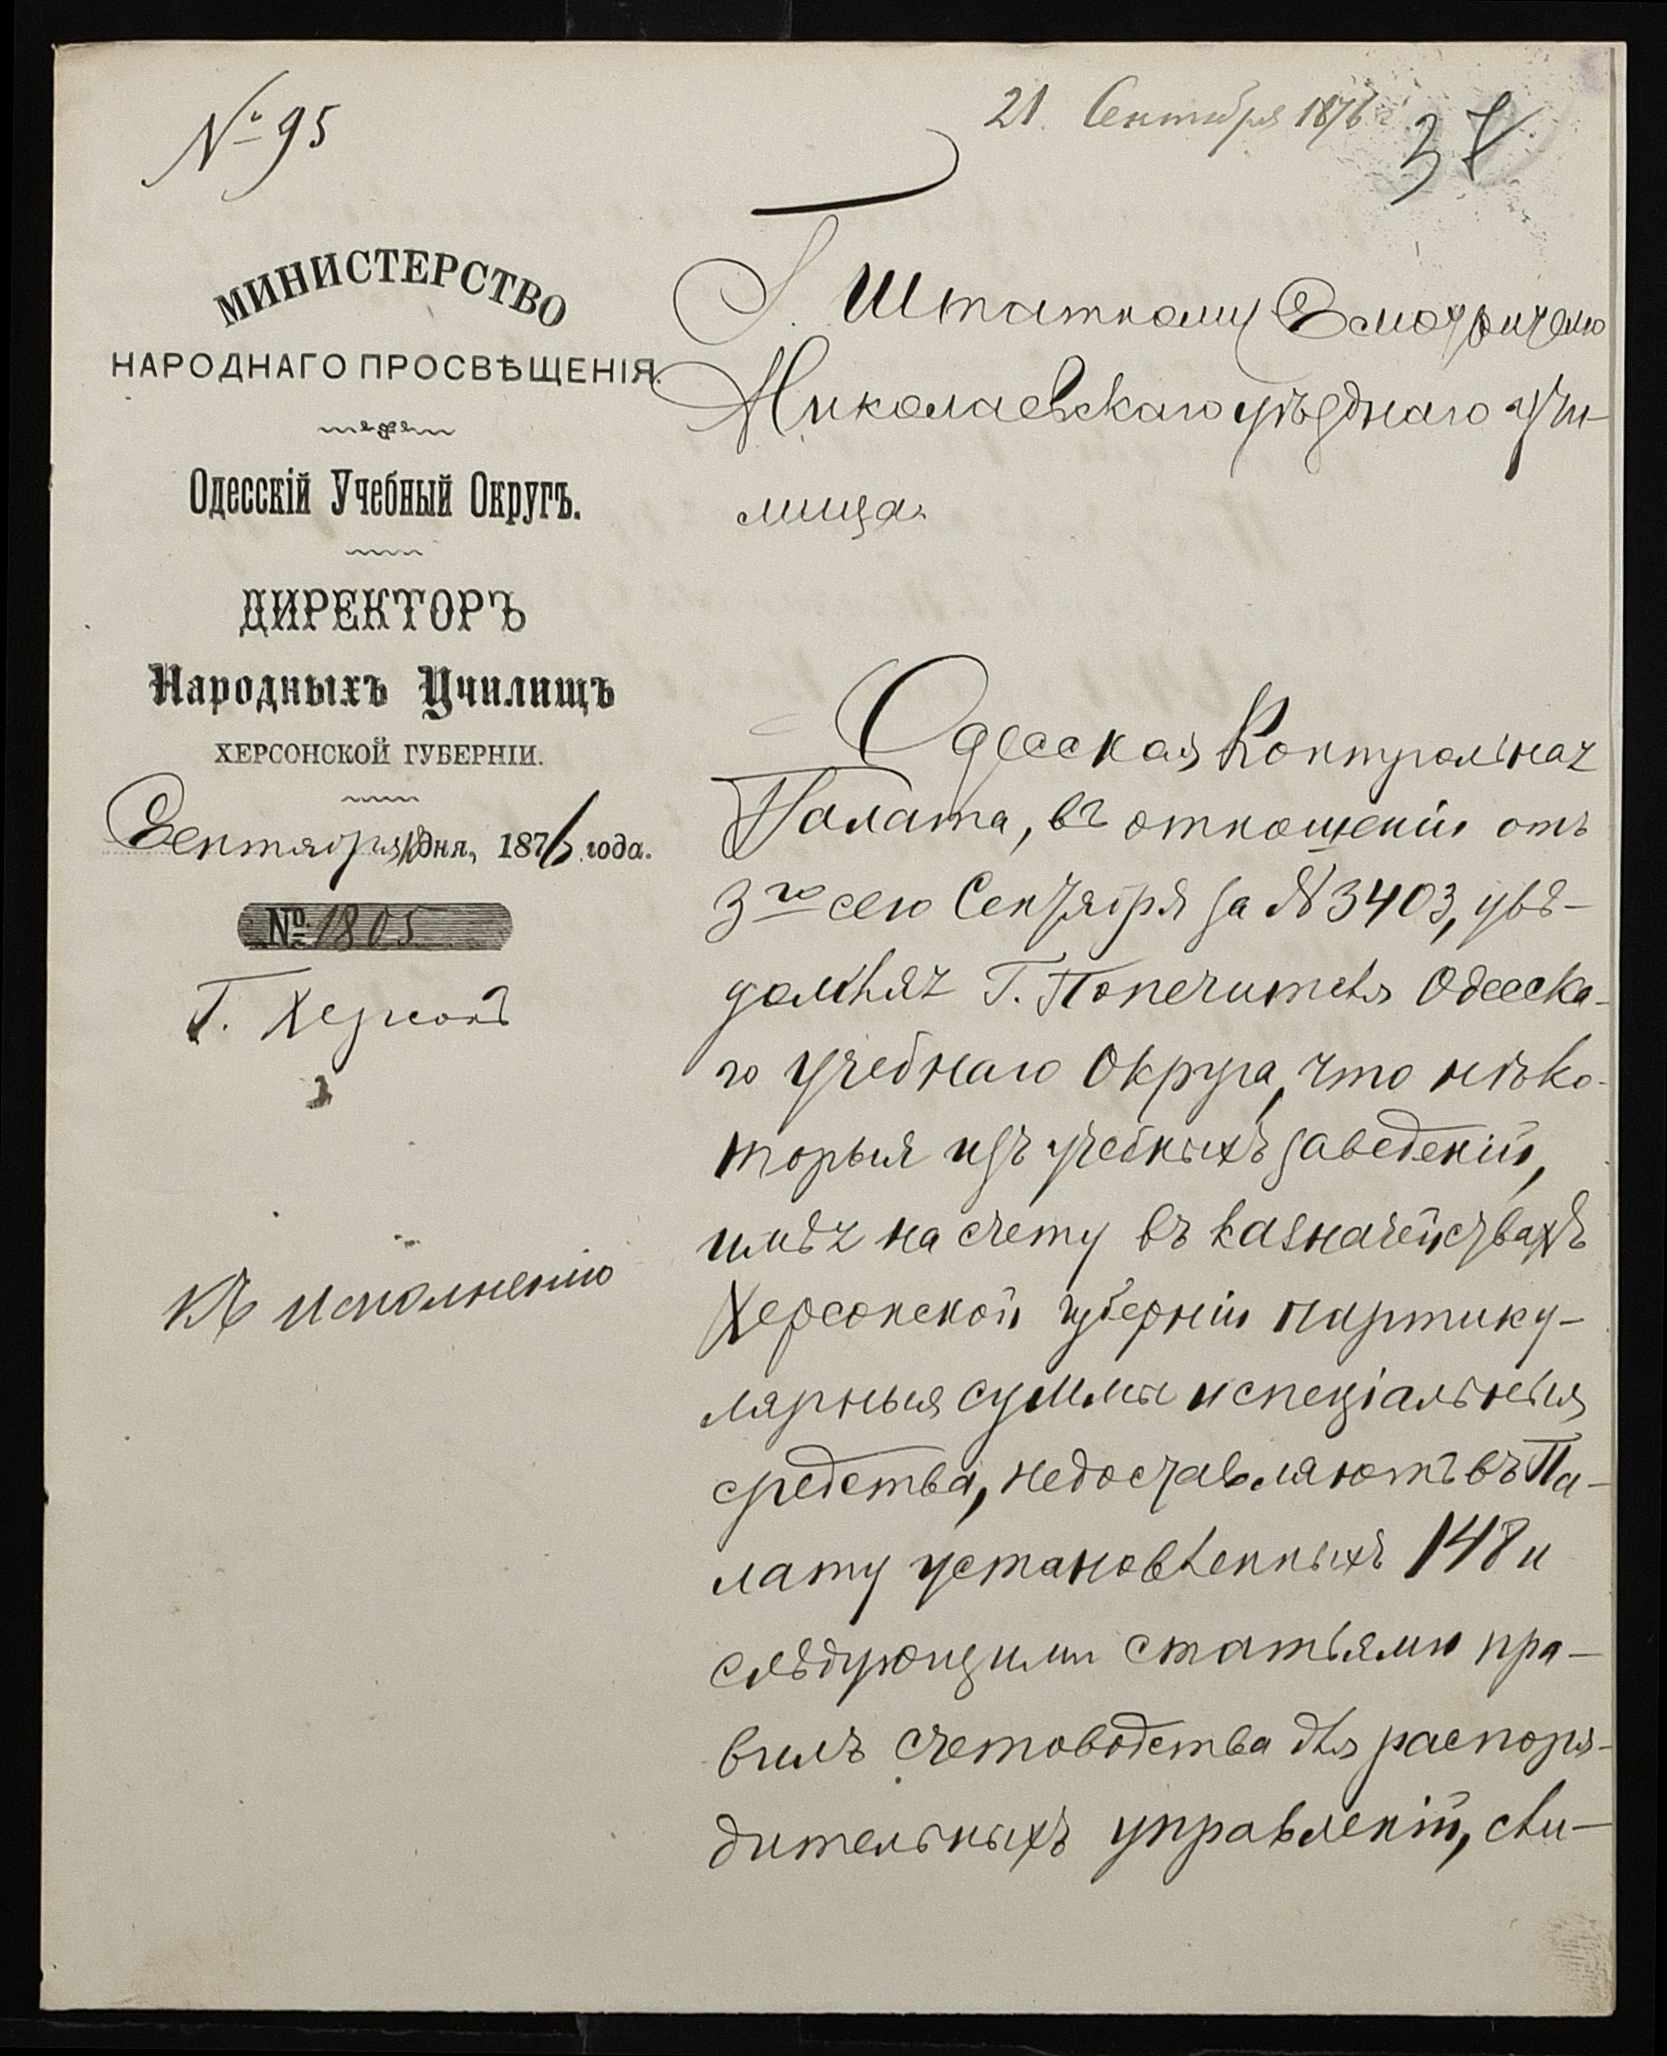 № 95
21. Сентября 1876 г.
МИНИСТЕРСТВО
НАРОДНАГО ПРОСВѢЩЕНІЯ.
Одесскій Учебный Округъ.
ДИРЕКТОРЪ
Народныхъ Училищъ
ХЕРСОНСКОЙ ГУБЕРНІИ.
Сентября дня, 1876 года.
№ 1805
Г. Херсонъ
Къ исполненію
Г. Штатному Смотрителю
Николаевскаго уѣзднаго учи-
лища.
Одесская Контрольная
Палата, въ отношеніи отъ
3го сего Сентября за № 3403, увѣ-
домляя Г. Попечителя Одесска-
го учебнаго Округа, что нѣко-
торыя изъ учебныхъ заведеній,
имѣя на счету въ казначействахъ
Херсонской губерніи партику-
лярныя суммы и спеціальныя
средства, недоставляютъ въ Па-
лату установленныхъ 148 и
слѣдующими статьями пра-
вилъ счетоводства для распоря-
дительныхъ управленій, сви-